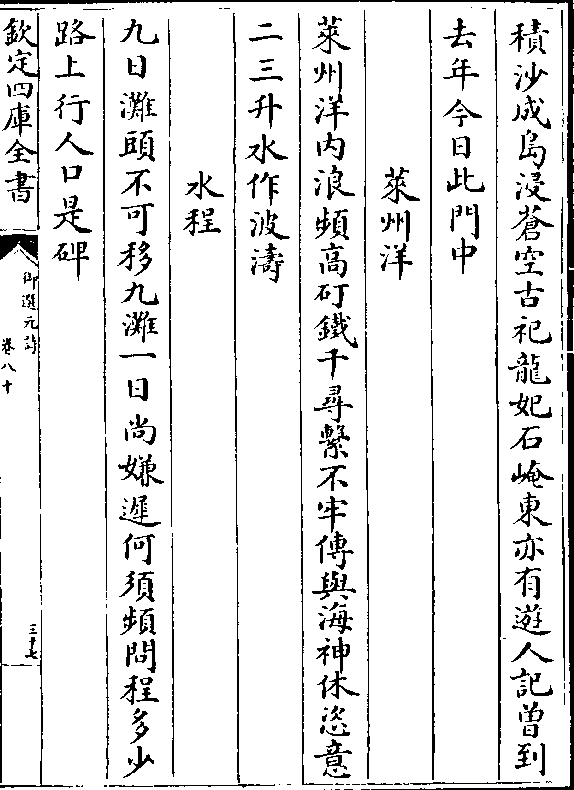 積沙成島浸蒼空古祀龍妃石崦東亦有遊人記曽到
去年今日此門中
萊州洋
萊州洋内浪頻高矴鐵千尋繫不牢傳與海神休恣意
二三升水作波濤
水程
九日灘頭不可移九灘一日尚嫌遲何須頻問程多少
路上行人口是碑
欽定四庫全書
御選元詩
卷八十
三十七